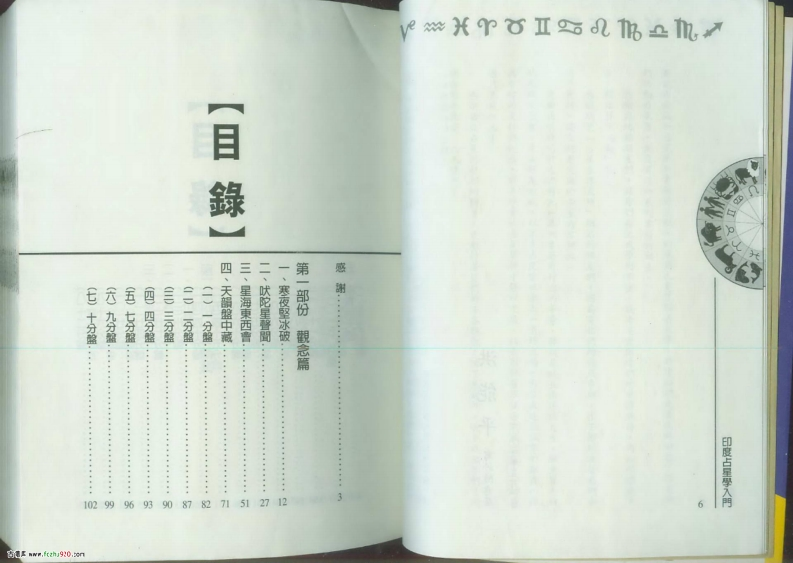 【目錄】
感謝…………3
第一部份 觀念篇
一、寒夜堅冰破…………12
二、吠陀星聲聞…………27
三、星海東西會…………51
四、天韻盤中藏…………71
(一)一分盤…………82
(二)二分盤…………87
(三)三分盤…………90
(四)四分盤…………93
(五)七分盤…………96
(六)九分盤…………99
(七)十分盤…………102
♑ ♒ ♓ ♈ ♉ ♊ ♋ ♌ ♍ ♎ ♏ ♐
印度占星學入門
6
www.fczhu920.com